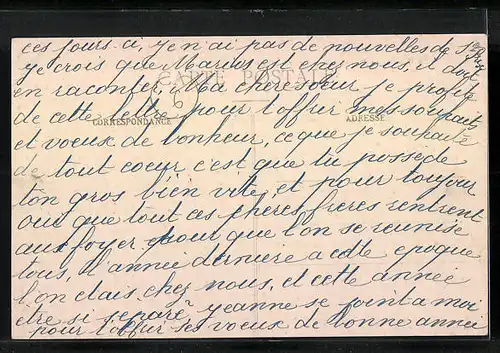 ces jours ci, y'en ai pas de nouvelles de
ye crois que Marius est chez nous, il doit
CARTE POSTALE
en raconter, Ma chere soeur je profite
de cette lettre pour t'offrir mes souhaits
CORRESPONDANCE ADRESSE
et voeux de bonheur, ce que je souhaite
de tout coeur c'est que tu possède
ton gros bien vite, et pour toujour
oui que tout ces chères frères rentrent
aux foyer pour que l'on se reunisse
tous, l'année derniere a cette epoque
l'on etais chez nous, et cette année
etre si separé yeanne se joint a moi
pour t'offrir ses voeux de bonne année